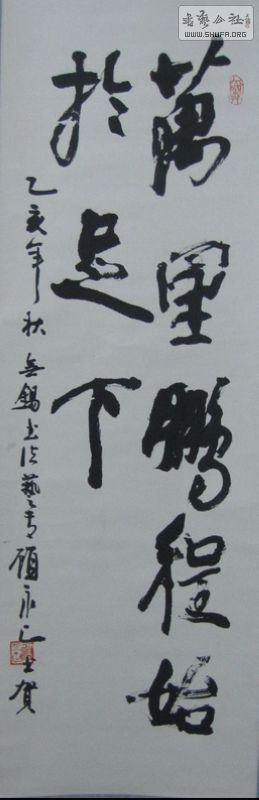 書藝公社
WWW.SHUFA.ORG
萬里鵬程始
於足下
乙亥年秋無錫書法藝專顧永上賀